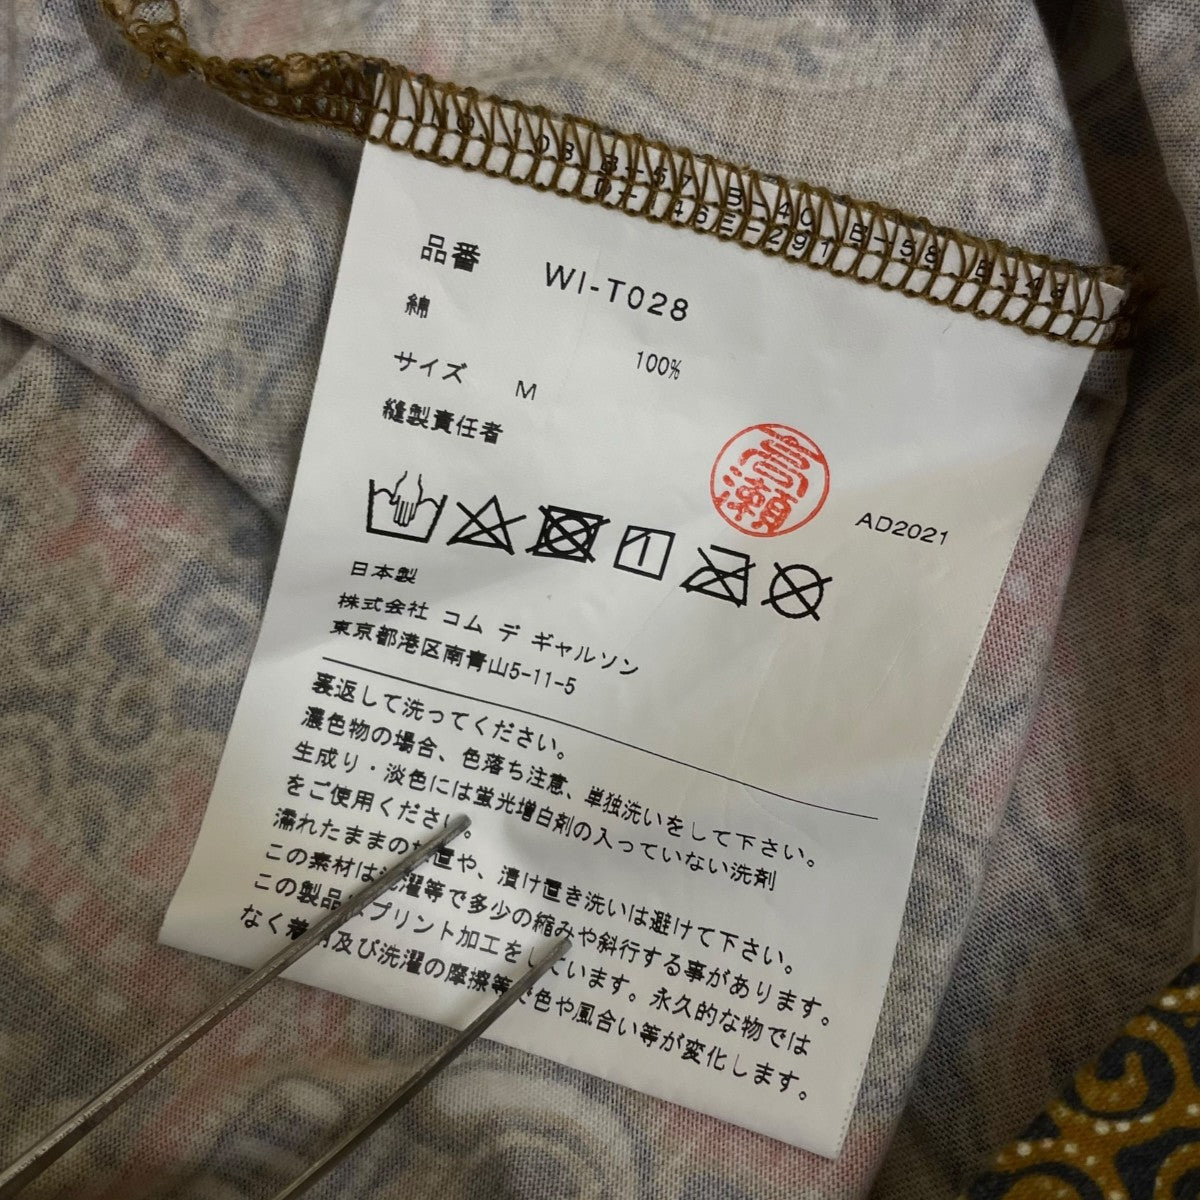 B-57 B-40 B-58
D- 46E-291
品番 WI-T028
綿 100%
サイズ M
縫製責任者
AD2021
日本製
株式会社 コム デ ギャルソン
東京都港区南青山5-11-5
裏返して洗ってください。
濃色物の場合、色落ち注意、単独洗いをして下さい。
生成り・淡色には蛍光増白剤の入っていない洗剤
をご使用ください。
濡れたままの 置や、漬け置き洗いは避けて下さい。
この素材は洗濯等で多少の縮みや斜行する事があります。
この製品はプリント加工をしています。永久的な物では
なく着用及び洗濯の摩擦等で色や風合い等が変化します。